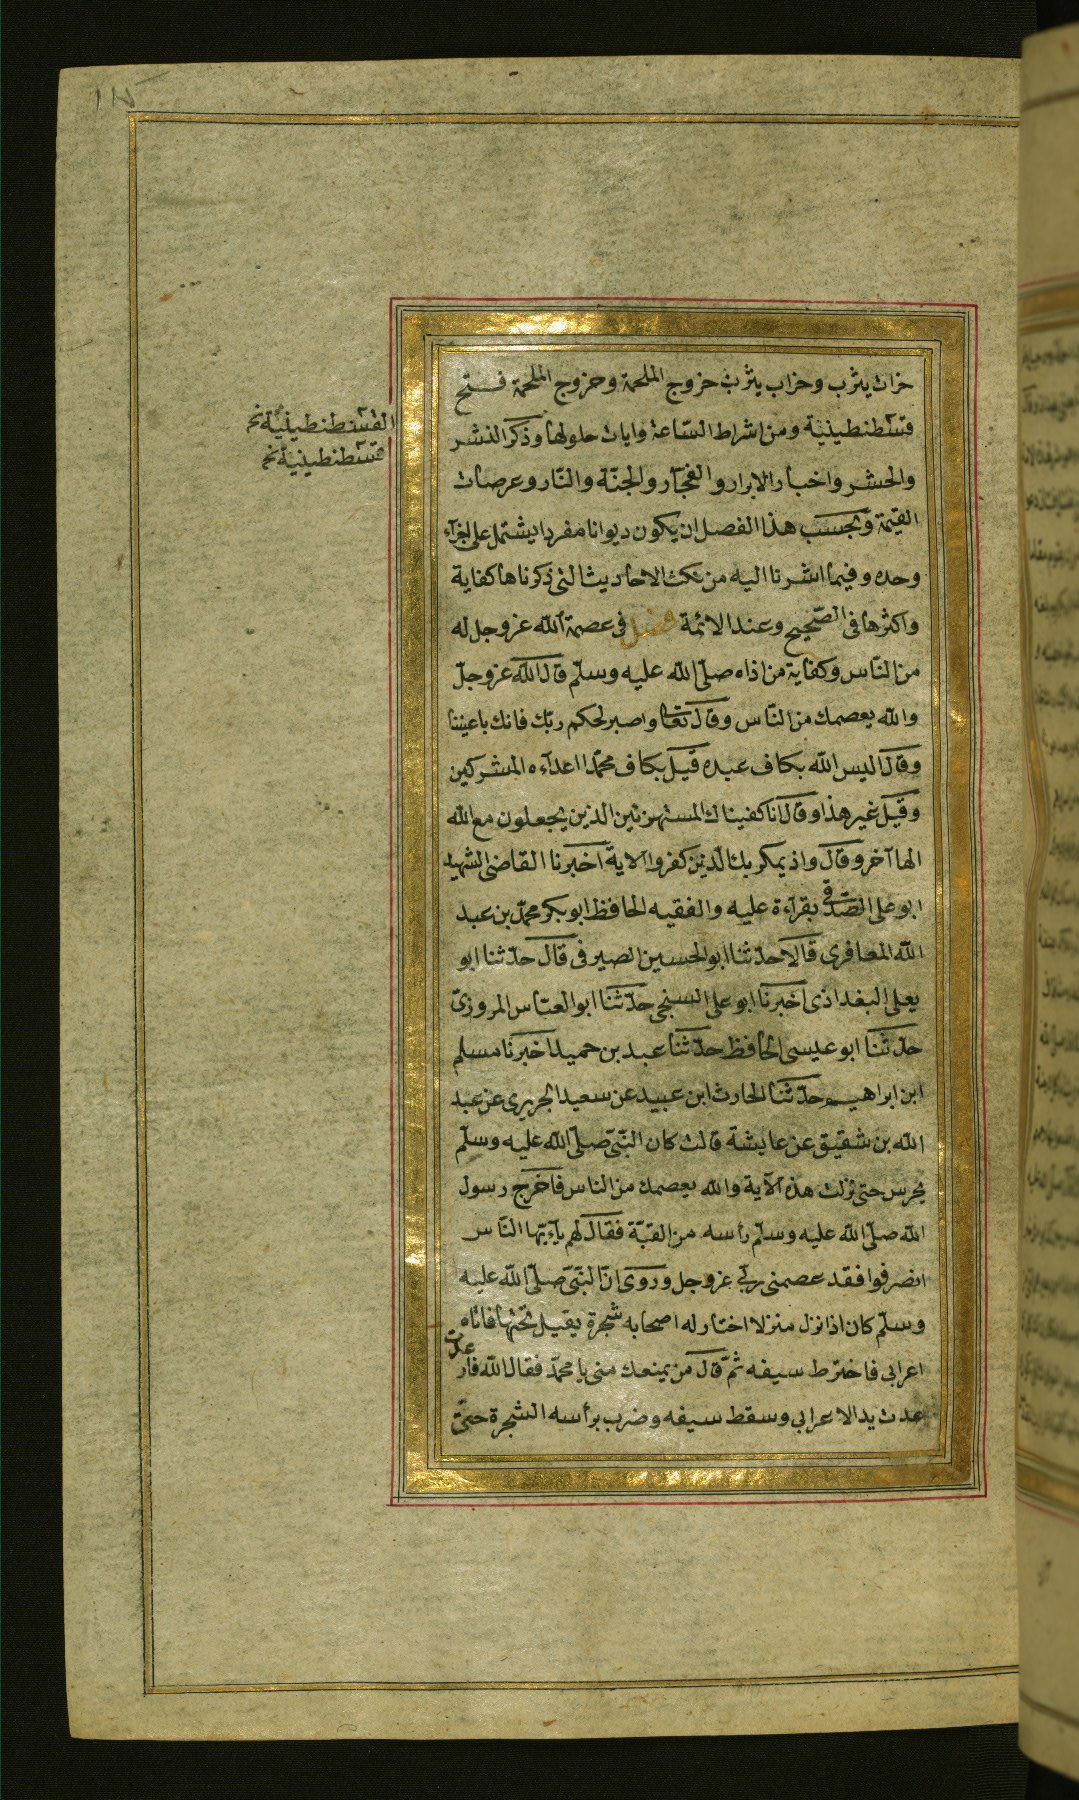 ١١٥
خراب يثرب وخراب يثرب خروج الملحمة وخروج الملحمة فتح
قسطنطينية ومن اشراط السّاعة وايات حلولها وذكر النشر
والحشر واخبار الابرار والفجّار والجنّة والنّار وعرصات
القيمة وبحسب هذا الفصل ان يكون ديوانا مفردا يشتمل على اجزآء
وحده وفيما اشرنا اليه من نكت الاحاديث التى ذكرناها كفاية
واكثرها فى الصّحيح وعند الائمة فصل فى عصمة الله عز وجل له
من النّاس وكفاية من اذاه صلّى الله عليه وسلّم قال الله عز وجلّ
والله يعصمك من النّاس وقال تعا واصبر لحكم ربّك فانك باعيننا
وقال اليس الله بكاف عبده قيل بكاف محمّدا اعدآءه المشركين
وقيل غير هذا وقال انا كفيناك المستهزئين الذين يجعلون مع الله
الها آخر وقال واذ يمكر بك الّذين كفروا الاية اخبرنا القاضى الشهيد
ابو على الصّدفى بقرآءة عليه والفقيه الحافظ ابو بكر محمّد بن عبد
الله المعافرى قالا حدّثنا ابو الحسين الصيرفى قال حدّثنا ابو
يعلى البغداذى اخبرنا ابو على السنجى حدّثنا ابو العبّاس المروزىّ
حدّثنا ابو عيسى الحافظ حدّثنا عبد بن حميد اخبرنا مسلم
ابن ابراهيم حدّثنا الحارث ابن عبيد عن سعيد الجريرى عن عبد
الله بن شقيق عن عايشة قالت كان النّبىّ صلّى الله عليه وسلّم
يحرس حتى نزلت هذه الآية والله يعصمك من الناس فاخرج رسول
الله صلّى الله عليه وسلّم رأسه من القبّة فقال لهم يآءيّها النّاس
انصرفوا فقد عصمنى ربّى عز وجل وروى انّ النّبىّ صلّى الله عليه
وسلّم كان اذا نزل منزلا اختار له اصحابه شجرة يقيل تحتها فاتاه
اعرابى فاخترط سيفه ثمّ قال من يمنعك منى يا محمّد فقال الله فار
عدت
عدت يد الاعرابى وسقط سيفه وضرب برأسه الشجرة حتّى
القسّطنطينيّة نخ
قسّطنطينيّة نخ